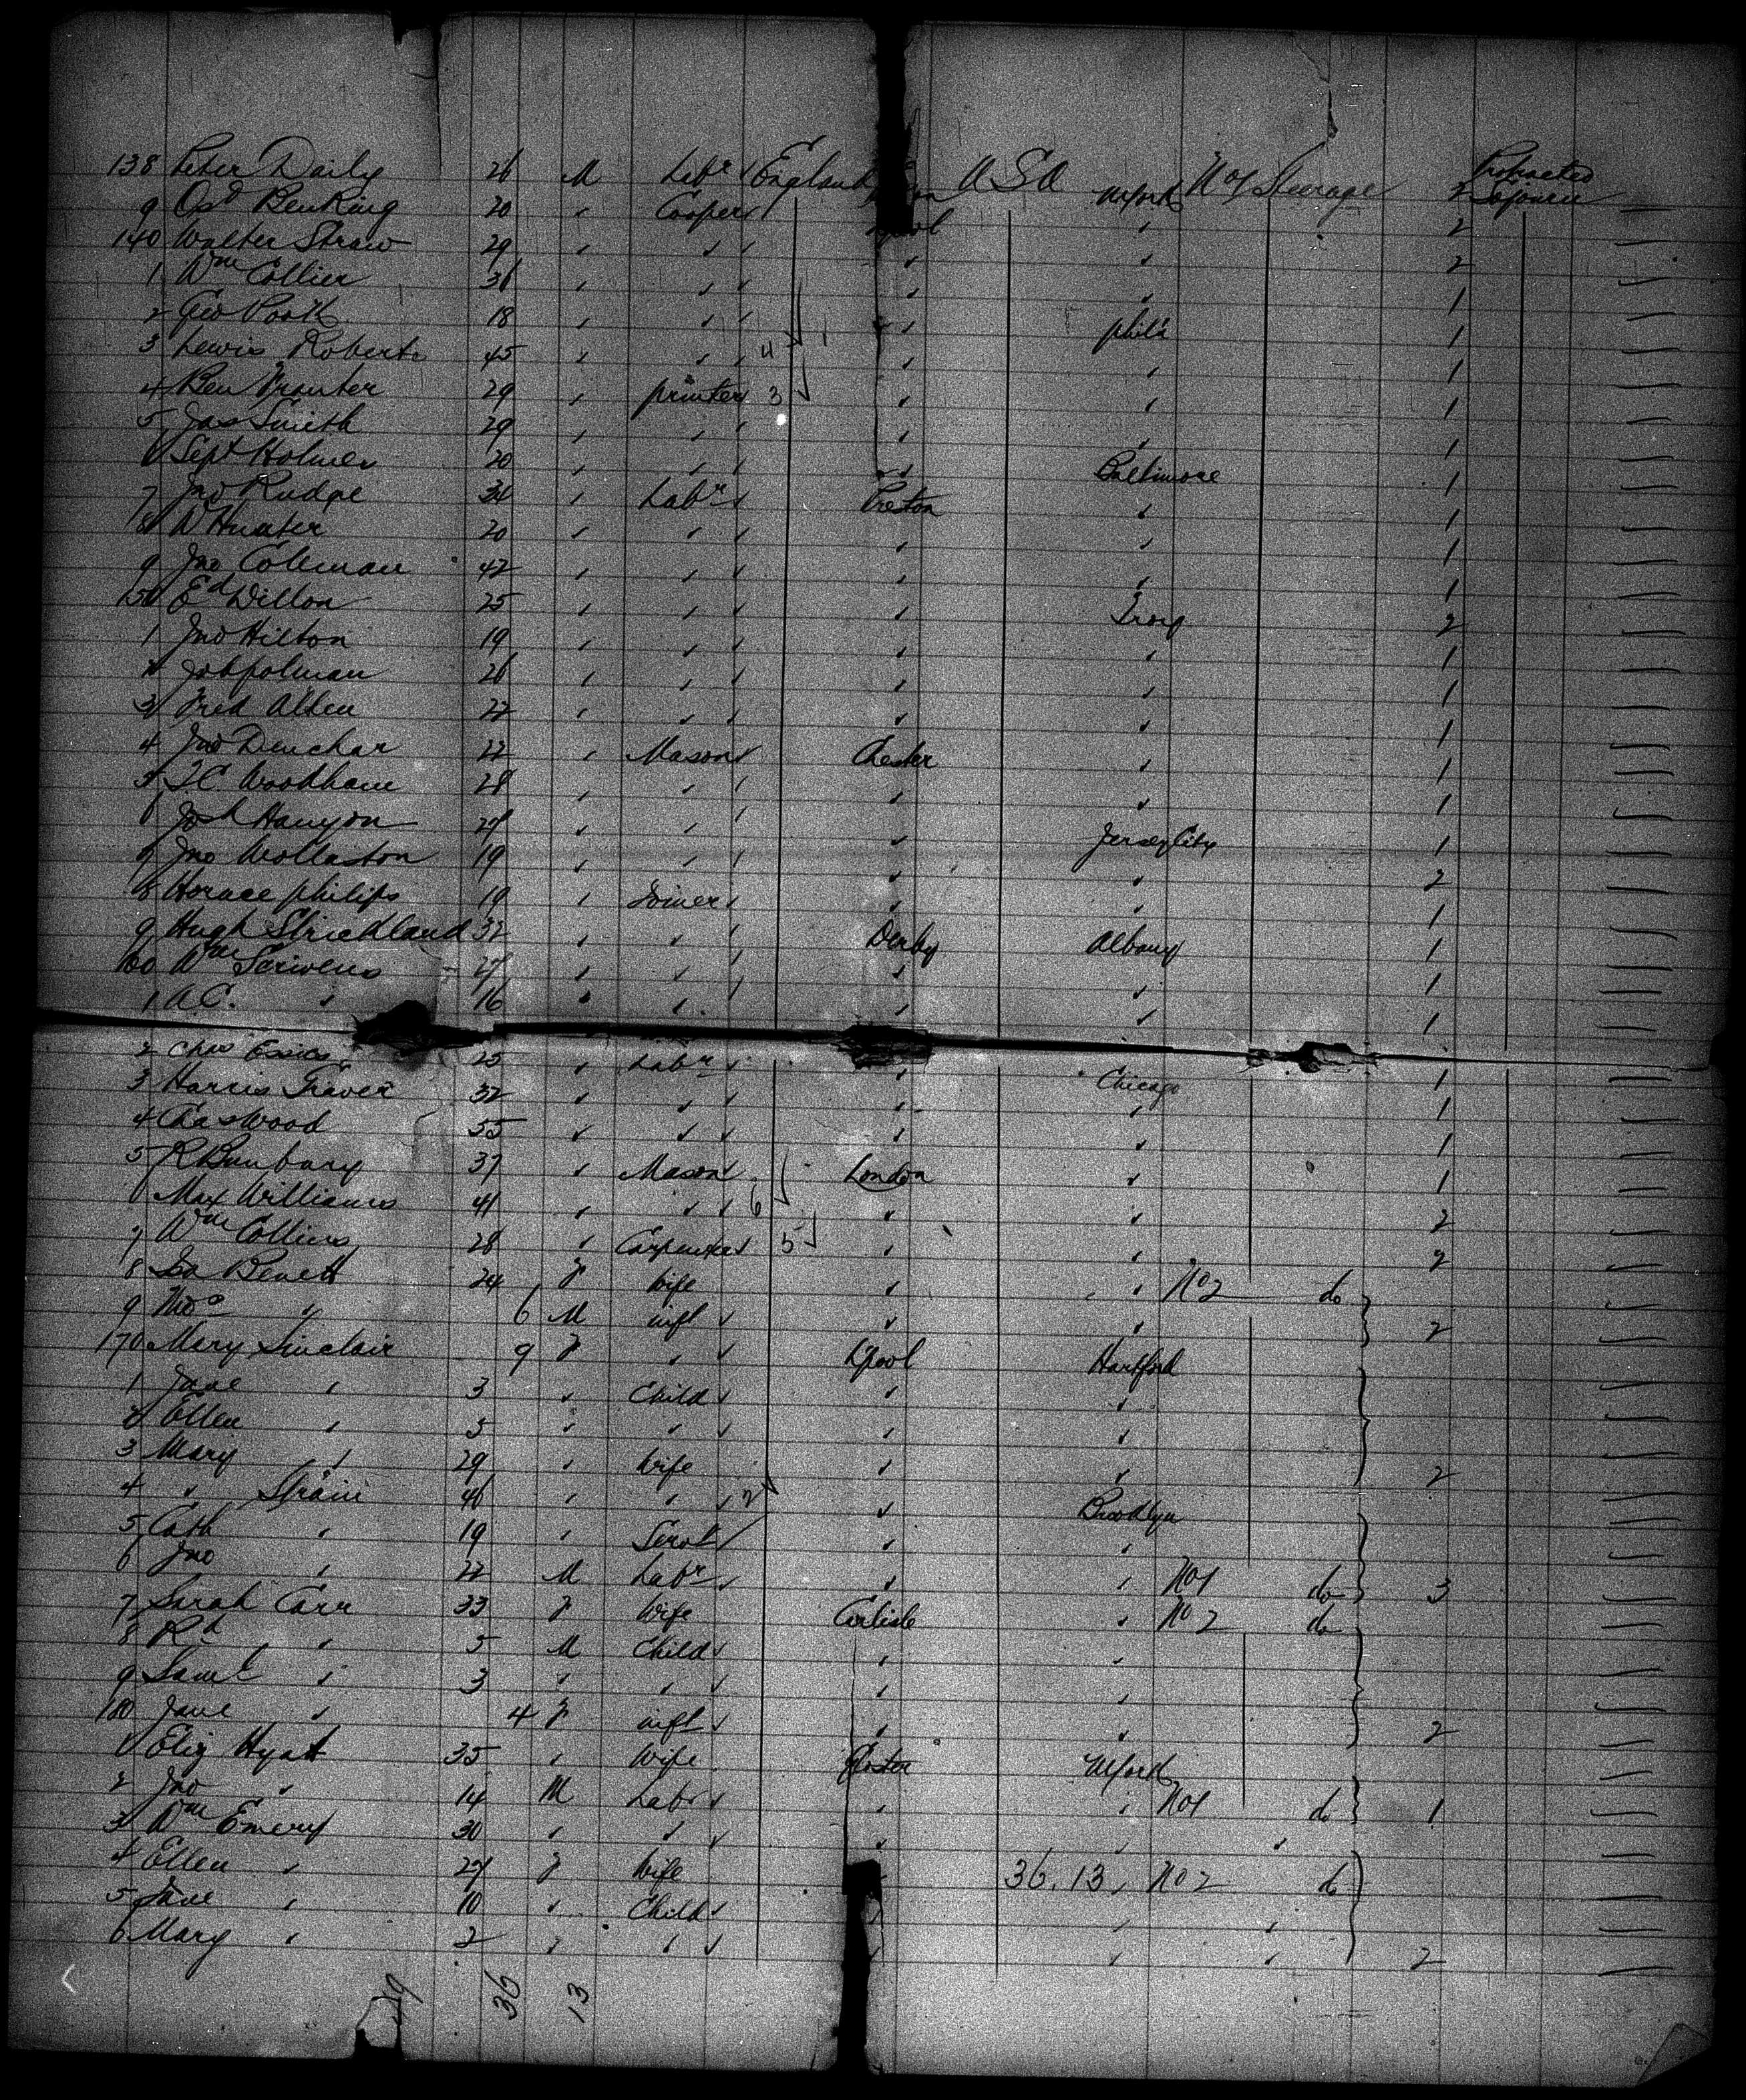 138 Peter Daily 26 M Labr England USA NYork No 1 Steerage 2 Protracted Sojourn
9 Osd Benking 20 " Cooper " pool " 2
140 Walter Straw 29 " " " " 2
1 Wm Collier 36 " " " " 1
2 Geo Pook 18 " " " phila 1
3 Lewis Roberts 45 " " 4 1 " " 1
4 Ben Wonter 29 " printer 3 " " 1
5 Jas Smith 29 " " " " 1
6 Sept Holmes 20 " " " Baltimore 1
7 Jno Rudge 34 " Labr Preston " 1
8 W Hunter 20 " " " " 1
9 Jno Coleman 42 " " " " 1
150 Ed Dillon 25 " " " Troy 2
1 Jno Hilton 19 " " " " 1
2 26 " " " " 1
3 Fred Alden 22 " " " " 1
4 Jno Deuchar 22 " Mason Chester " 1
5 T C Woodham 28 " " " " 1
6 Josh Hanyon 27 " " " Jersey City 1
7 Jno Wollaston 19 " " " " 2
8 Horace philips 19 " Joiner " " 1
9 Hugh Strickland 32 " " Derby Albany 1
160 Wm Scrivens 27 " " " " 1
1 A C. " 16 " " " " 1
2 Chas Essies 25 " Labr " Chicago 1
3 Harris Traver 32 " " " " 1
4 Chas Wood 55 " " " " 1
5 R Bunbury 37 " Mason London " 1
6 Max Williams 41 " " 6 " " 2
7 Wm Collins 28 " Carpenter 5 " " 2
8 Isa Benett 24 F Wife " " No 2 do
9 Thos " 6 M inft " " 2
170 Mary Sinclair 9 F " Lpool Hartford
1 Jane " 3 " Child " "
2 Ellen " 5 " " " "
3 Mary " 29 " Wife " " 2
4 " Spain 46 " " 2 " Brooklyn
5 Cath " 19 " Servt " "
6 Jno " 22 M Labr " " No 1 do 3
7 Sarah Carr 33 F Wife Carlisle " No 2 do
8 Rd " 5 M Child " "
9 Saml " 3 " " " "
180 Jane " 4 F inft " " 2
1 Eliz Hyatt 35 " Wife NYork
2 Jno " 14 M Labr " " No 1 do 1
3 Wm Emery 30 " " " " "
4 Ellen " 27 F Wife 36.13 " No 2 do
5 Jane " 10 " Child " " "
6 Mary " 2 " " " " " 2
49 36 13